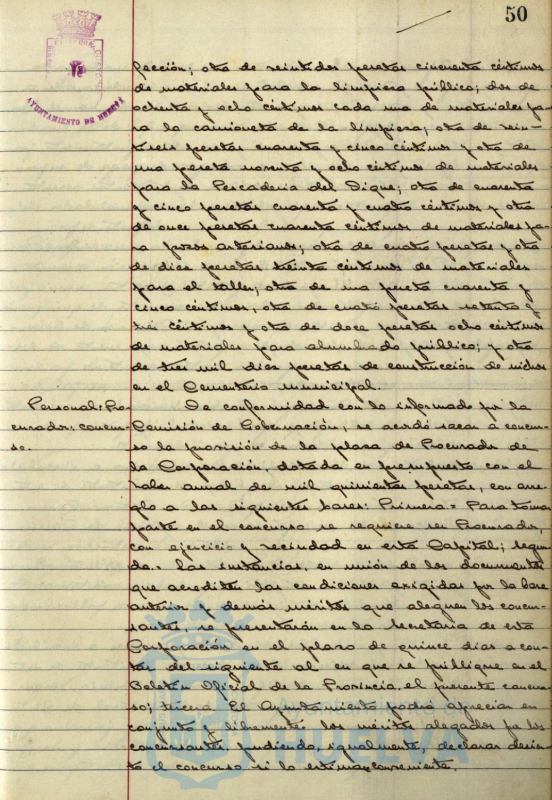 50
AYUNTAMIENTO DE HUELVA
fección; otra de veintidos pesetas cincuenta céntimos
de materiales para la limpieza pública; dos de
ochenta y ocho céntimos cada una de materiales pa-
ra la camioneta de la limpieza; otra de vein-
tiseis pesetas cuarenta y cinco céntimos y otra de
una peseta noventa y ocho céntimos de materiales
para la Pescaderia del Dique; otra de cuarenta
y cinco pesetas cuarenta y cuatro céntimos y otra
de once pesetas cuarenta céntimos de materiales pa-
ra pozos artesianos; otra de cuatro pesetas y otra
de diez pesetas treinta céntimos de materiales
para el taller; otra de una peseta cuarenta y
cinco céntimos, otra de cuatro pesetas setenta y
tres céntimos y otra de doce pesetas ocho céntimos
de materiales para alumbrado público; y otra
de tres mil diez pesetas de construcción de nichos
en el Cementerio municipal.
Personal: Pro-
curador: concur-
so.
De conformidad con lo informado por la
Comisión de Gobernación, se acordó sacar a concur-
so la provisión de la plaza de Procurador de
la Corporación, dotada en presupuesto con el
haber anual de mil quinientas pesetas, con arre-
glo a las siguientes bases: Primera.= Para tomar
parte en el concurso se requiere ser Procurador,
con ejercicio y vecindad en esta Capital; segun-
da.= Las instancias, en unión de los documentos
que acrediten las condiciones exigidas por la base
anterior y demás méritos que aleguen los concur-
santes, se presentarán en la Secretaria de esta
Corporación en el plazo de quince dias a con-
tar del siguiente al en que se publique en el
Boletín Oficial de la Provincia, el presente concur-
so; tercera. El Ayuntamiento podrá apreciar en
conjunto y libremente los méritos alegados por los
concursantes, pudiendo, igualmente, declarar desier-
to el concurso si lo estima conveniente.
HUELVA